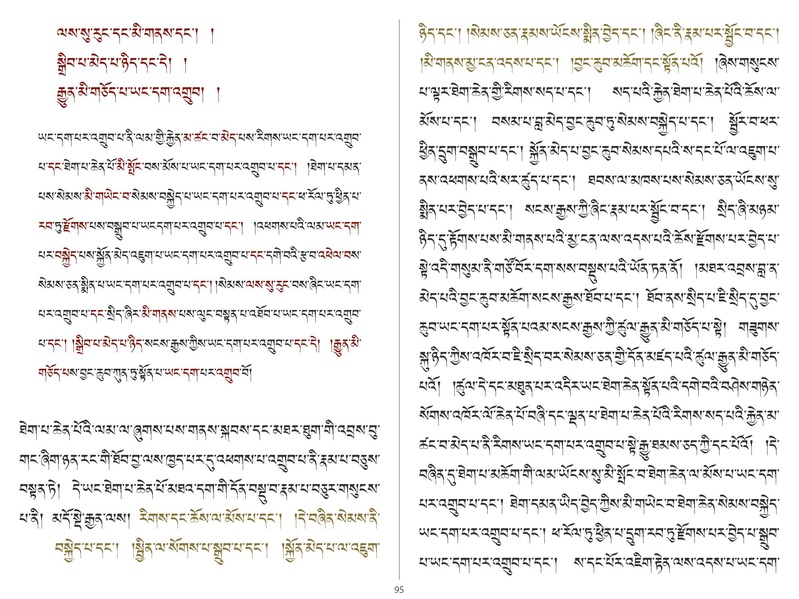 ལས་སུ་རུང་དང་མི་གནས་དང་། །
སྒྲིབ་པ་མེད་པ་ཉིད་དང་དེ། །
རྒྱུན་མི་གཅོད་པ་ཡང་དག་འགྲུབ། །
ཡང་དག་པར་འགྲུབ་པ་ནི་ལམ་གྱི་རྐྱེན་མ་ཚང་བ་མེད་པས་རིགས་ཡང་དག་པར་འགྲུབ་
པ་དང་ཐེག་པ་ཆེན་པོ་མི་སྤོང་བས་མོས་པ་ཡང་དག་པར་འགྲུབ་པ་དང་། །ཐེག་པ་དམན་
པས་སེམས་མི་གཡེང་བ་སེམས་བསྐྱེད་པ་ཡང་དག་པར་འགྲུབ་པ་དང་ཕ་རོལ་ཏུ་ཕྱིན་པ་
རབ་ཏུ་རྫོགས་པས་བསྒྲུབ་པ་ཡང་དག་པར་འགྲུབ་པ་དང་། །འཕགས་པའི་ལམ་ཡང་དག་
པར་བསྐྱེད་པས་སྐྱོན་མེད་འཇུག་པ་ཡང་དག་པར་འགྲུབ་པ་དང་དགེ་བའི་རྩ་བ་འཕེལ་བས་
སེམས་ཅན་སྨིན་པ་ཡང་དག་པར་འགྲུབ་པ་དང་། །སེམས་ལས་སུ་རུང་བས་ཞིང་ཡང་དག་
པར་འགྲུབ་པ་དང་སྲིད་ཞིར་མི་གནས་པས་ལུང་བསྟན་པ་འཐོབ་པ་ཡང་དག་པར་འགྲུབ་
པ་དང་། །སྒྲིབ་པ་མེད་པ་ཉིད་སངས་རྒྱས་ཀྱིས་ཡང་དག་པར་འགྲུབ་པ་དང་དེ། །རྒྱུན་མི་
གཅོད་པས་བྱང་ཆུབ་ཀུན་ཏུ་སྟོན་པ་ཡང་དག་པར་འགྲུབ་བོ།
ཐེག་པ་ཆེན་པོའི་ལམ་ལ་ཞུགས་པས་གནས་སྐབས་དང་མཐར་ཐུག་གི་འབྲས་བུ་
གང་ཞིག་ཉན་རང་གི་ཐོབ་བྱ་ལས་ཁྱད་པར་དུ་འཕགས་པ་འགྲུབ་པ་ནི་རྣམ་པ་བཅུས་
བསྟན་ཏེ། དེ་ཡང་ཐེག་པ་ཆེན་པོ་མཐའ་དག་གི་དོན་བསྡུ་བ་རྣམ་པ་བཅུར་གསུངས་
པ་ནི། མདོ་སྡེ་རྒྱན་ལས། རིགས་དང་ཆོས་ལ་མོས་པ་དང་། །དེ་བཞིན་སེམས་ནི་
བསྐྱེད་པ་དང་། །སྦྱིན་ལ་སོགས་པ་སྒྲུབ་པ་དང་། །སྐྱོན་མེད་པ་ལ་འཇུག་
ཉིད་དང་། །སེམས་ཅན་རྣམས་ཡོངས་སྨིན་བྱེད་དང་། །ཞིང་ནི་རྣམ་པར་སྦྱོང་བ་དང་།
།མི་གནས་མྱ་ངན་འདས་པ་དང་། །བྱང་ཆུབ་མཆོག་དང་སྟོན་པའོ། །ཞེས་གསུངས་
པ་ལྟར་ཐེག་ཆེན་གྱི་རིགས་སད་པ་དང་། སད་པའི་རྐྱེན་ཐེག་པ་ཆེན་པོའི་ཆོས་ལ་
མོས་པ་དང་། བསམ་པ་བླ་མེད་བྱང་ཆུབ་ཏུ་སེམས་བསྐྱེད་པ་དང་། སྦྱོར་བ་ཕར་
ཕྱིན་དྲུག་བསྒྲུབ་པ་དང་། སྐྱོན་མེད་པ་བྱང་ཆུབ་སེམས་དཔའི་ས་དང་པོ་ལ་འཇུག་པ་
ནས་འཕགས་པའི་སར་ཚུད་པ་དང་། ཐབས་ལ་མཁས་པས་སེམས་ཅན་ཡོངས་སུ་
སྨིན་པར་བྱེད་པ་དང་། སངས་རྒྱས་ཀྱི་ཞིང་རྣམ་པར་སྦྱོང་བ་དང་། སྲིད་ཞི་མཉམ་
ཉིད་དུ་རྟོགས་པས་མི་གནས་པའི་མྱ་ངན་ལས་འདས་པའི་ཆོས་རྫོགས་པར་བྱེད་པ་
སྟེ་འདི་གསུམ་ནི་གཙོ་བོར་དག་སས་བསྡུས་པའི་ཡོན་ཏན་ནོ། །མཐར་འབྲས་བུ་བླ་ན་
མེད་པའི་བྱང་ཆུབ་མཆོག་སངས་རྒྱས་ཐོབ་པ་དང་། ཐོབ་ནས་སྲིད་པ་ཇི་སྲིད་དུ་བྱང་
ཆུབ་ཡང་དག་པར་སྟོན་པའམ་སངས་རྒྱས་ཀྱི་ཚུལ་རྒྱུན་མི་གཅོད་པ་སྟེ། གཟུགས་
སྐུ་ཉིད་ཀྱིས་འཁོར་བ་ཇི་སྲིད་བར་སེམས་ཅན་གྱི་དོན་མཛད་པའི་ཚུལ་རྒྱུན་མི་གཅོད་
པའོ། །ཚུལ་དེ་དང་མཐུན་པར་འདིར་ཡང་ཐེག་ཆེན་སྟོན་པའི་དགེ་བའི་བཤེས་གཉེན་
སོགས་འཁོར་ལོ་ཆེན་པོ་བཞི་དང་ལྡན་པ་ཐེག་པ་ཆེན་པོའི་རིགས་སད་པའི་རྐྱེན་མ་
ཚང་བ་མེད་པ་ནི་རིགས་ཡང་དག་པར་འགྲུབ་པ་སྟེ་རྒྱུ་ཐམས་ཅད་ཀྱི་དང་པོའོ། །དེ་
བཞིན་དུ་ཐེག་པ་མཆོག་གི་ལམ་ཡོངས་སུ་མི་སྤོང་བ་ཐེག་ཆེན་ལ་མོས་པ་ཡང་དག་
པར་འགྲུབ་པ་དང་། ཐེག་དམན་ཡིད་བྱེད་ཀྱིས་མི་གཡེང་བ་ཐེག་ཆེན་སེམས་བསྐྱེད་
ཡང་དག་པར་འགྲུབ་པ་དང་། ཕ་རོལ་ཏུ་ཕྱིན་པ་དྲུག་རབ་ཏུ་རྫོགས་པར་བྱེད་པ་སྒྲུབ་
པ་ཡང་དག་པར་འགྲུབ་པ་དང་། ས་དང་པོར་འཇིག་རྟེན་ལས་འདས་པ་ཡང་དག་
95